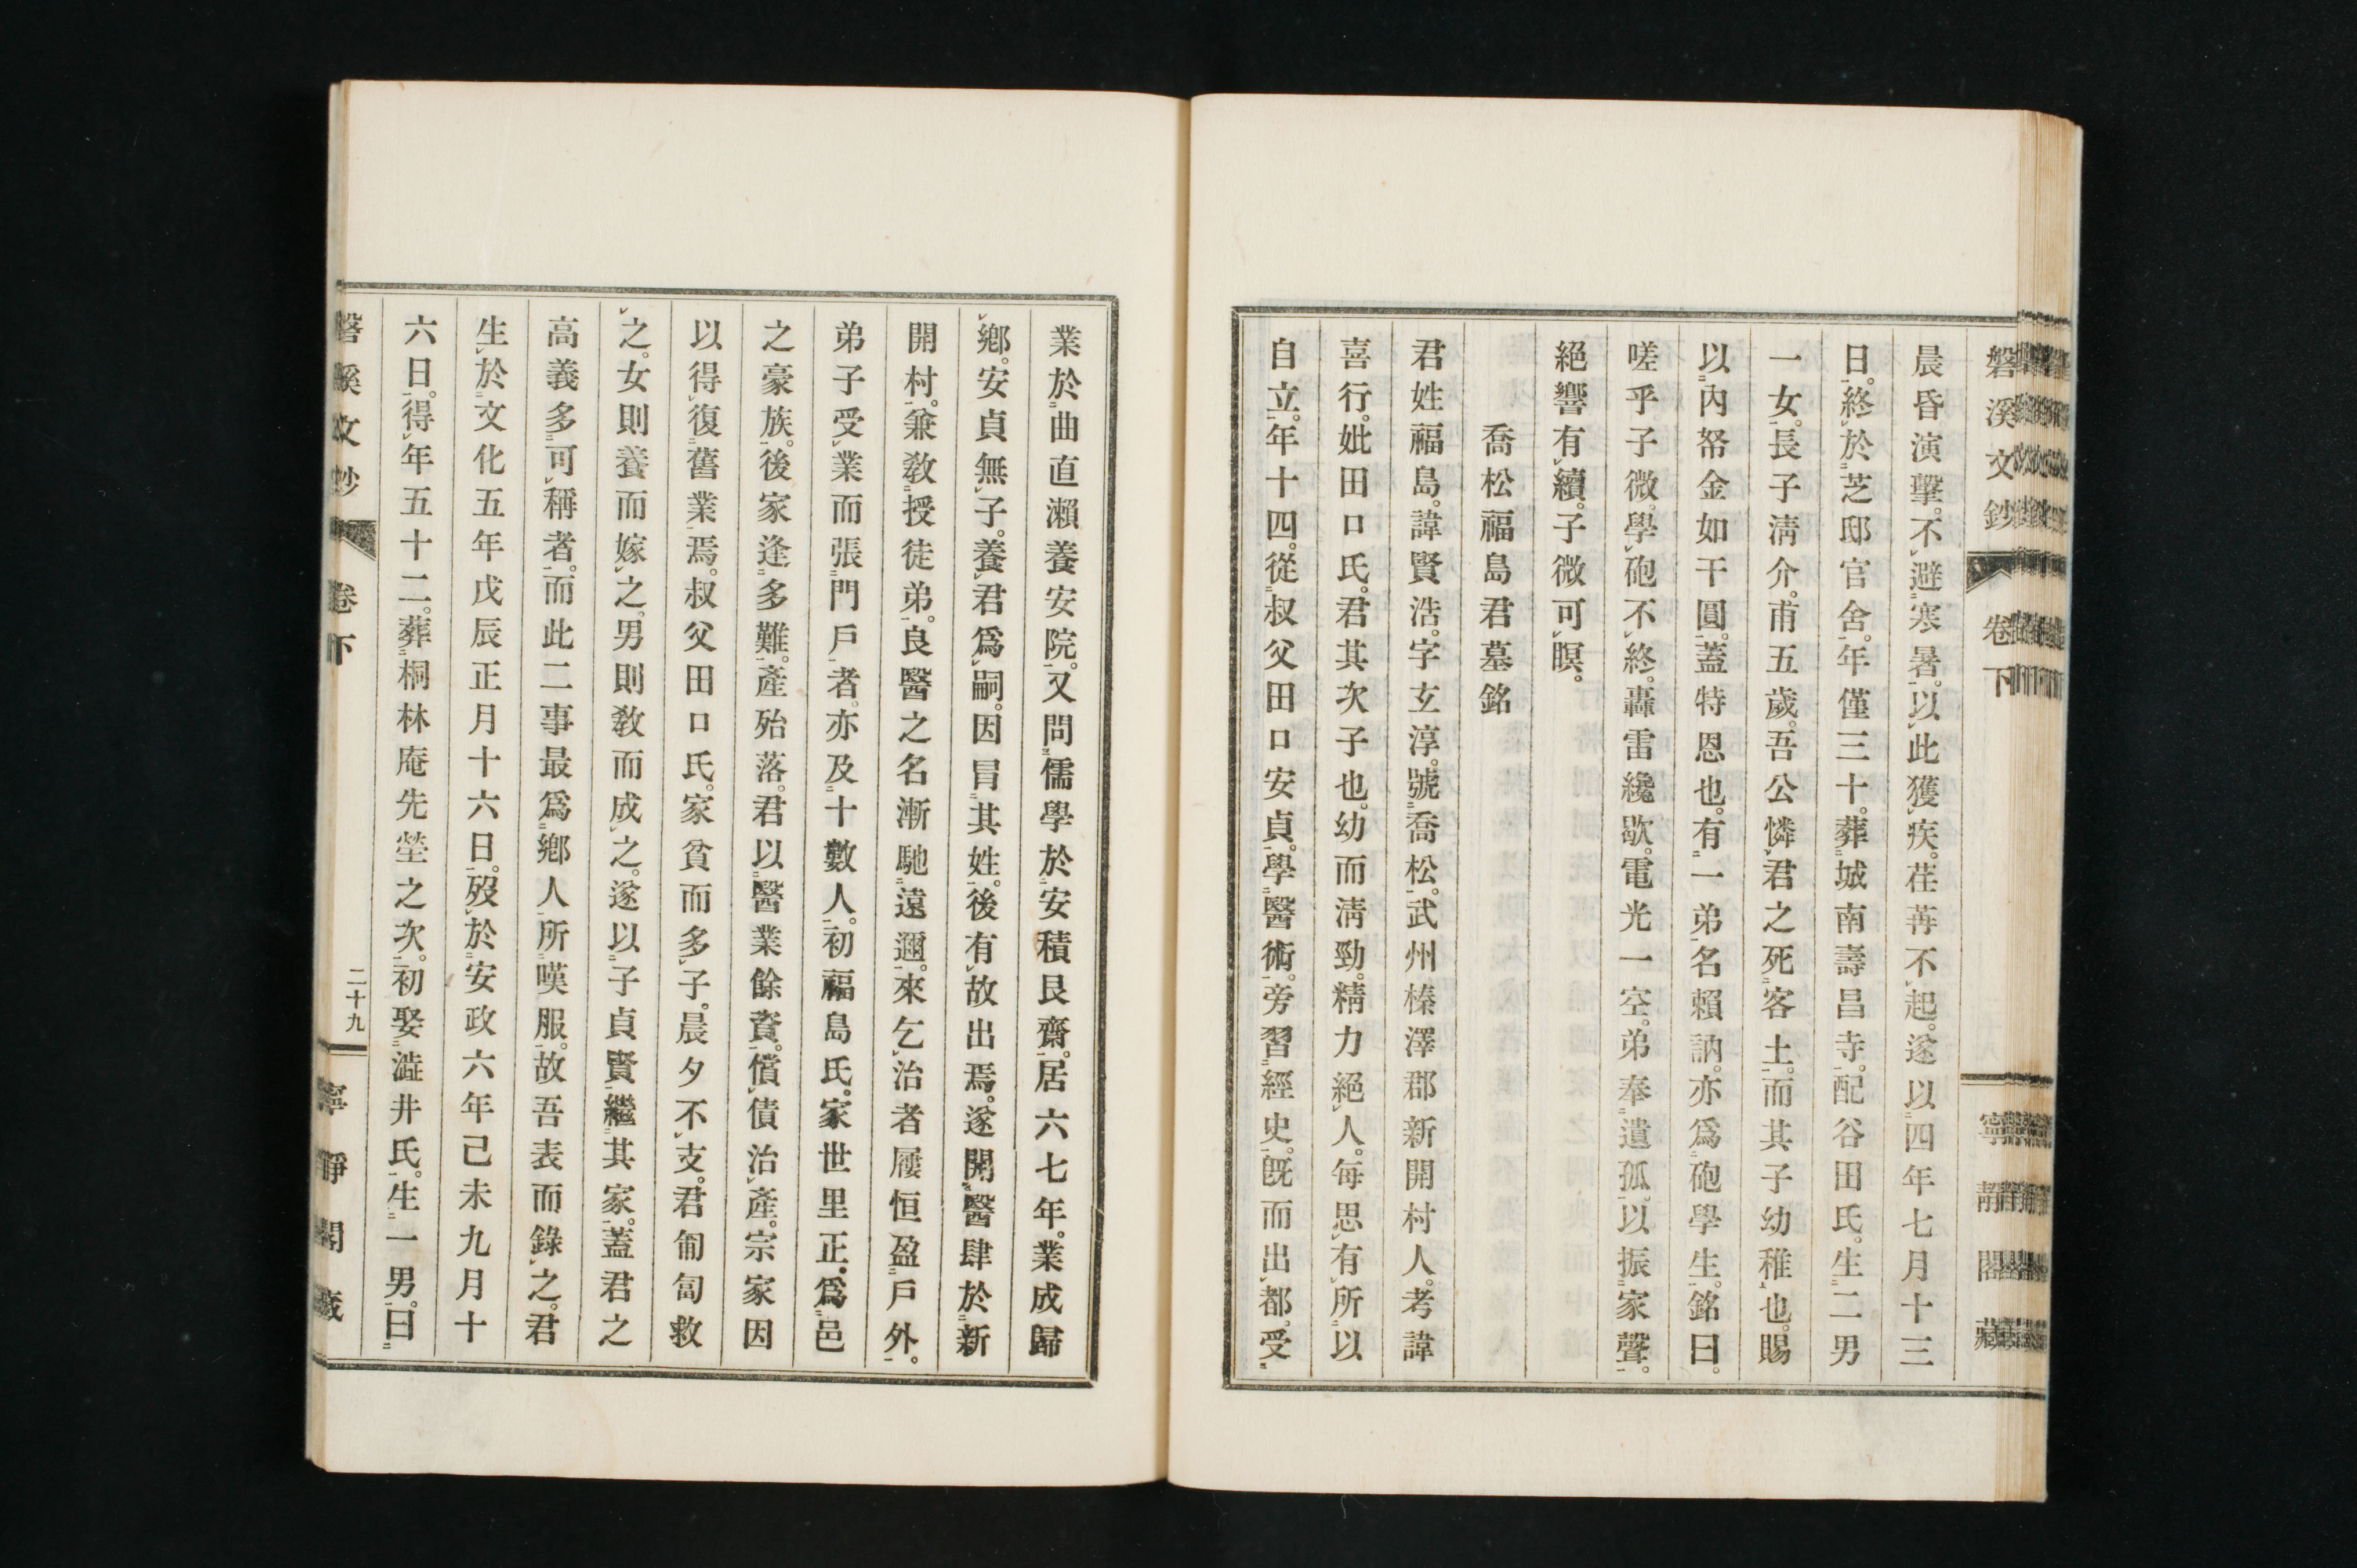 磐溪文鈔 卷下 寧靜閣藏
晨昏演擊。不避寒暑。以此獲疾。荏苒不起。遂以四年七月十三
日。終於芝邸官舍。年僅三十。葬城南壽昌寺。配谷田氏。生二男
一女。長子清介。甫五歲。吾公憐君之死客土。而其子幼稚也。賜
以內帑金如干圓。蓋特恩也。有一弟名賴訥。亦爲砲學生。銘曰。
嗟乎子微。學砲不終。轟雷纔歇。電光一空。弟奉遺孤。以振家聲。
絕響有續。子微可瞑。
喬松福島君墓銘
君姓福島。諱賢浩。字玄淳。號喬松。武州榛澤郡新開村人。考諱
喜行。妣田口氏。君其次子也。幼而清勁。精力絕人。每思有所以
自立。年十四。從叔父田口安貞。學醫術。旁習經史。既而出都。受
業於曲直瀨養安院。又問儒學於安積艮齋。居六七年。業成歸
鄉。安貞無子。養君爲嗣。因冒其姓。後有故出焉。遂開醫肆於新
開村。兼教授徒弟。良醫之名漸馳遠邇。來乞治者屨恒盈戶外。
弟子受業而張門戶者。亦及十數人。初福島氏。家世里正。爲邑
之豪族。後家逢多難。產殆落。君以醫業餘資。償債治產。宗家因
以得復舊業焉。叔父田口氏。家貧而多子。晨夕不支。君匍匐救
之。女則養而嫁之。男則教而成之。遂以子貞賢繼其家。蓋君之
高義多可稱者。而此二事最爲鄉人所嘆服。故吾表而錄之。君
生於文化五年戊辰正月十六日。歿於安政六年己未九月十
六日。得年五十二。葬桐林庵先塋之次。初娶澁井氏。生一男。曰
磐溪文鈔 卷下 二十九 寧靜閣藏